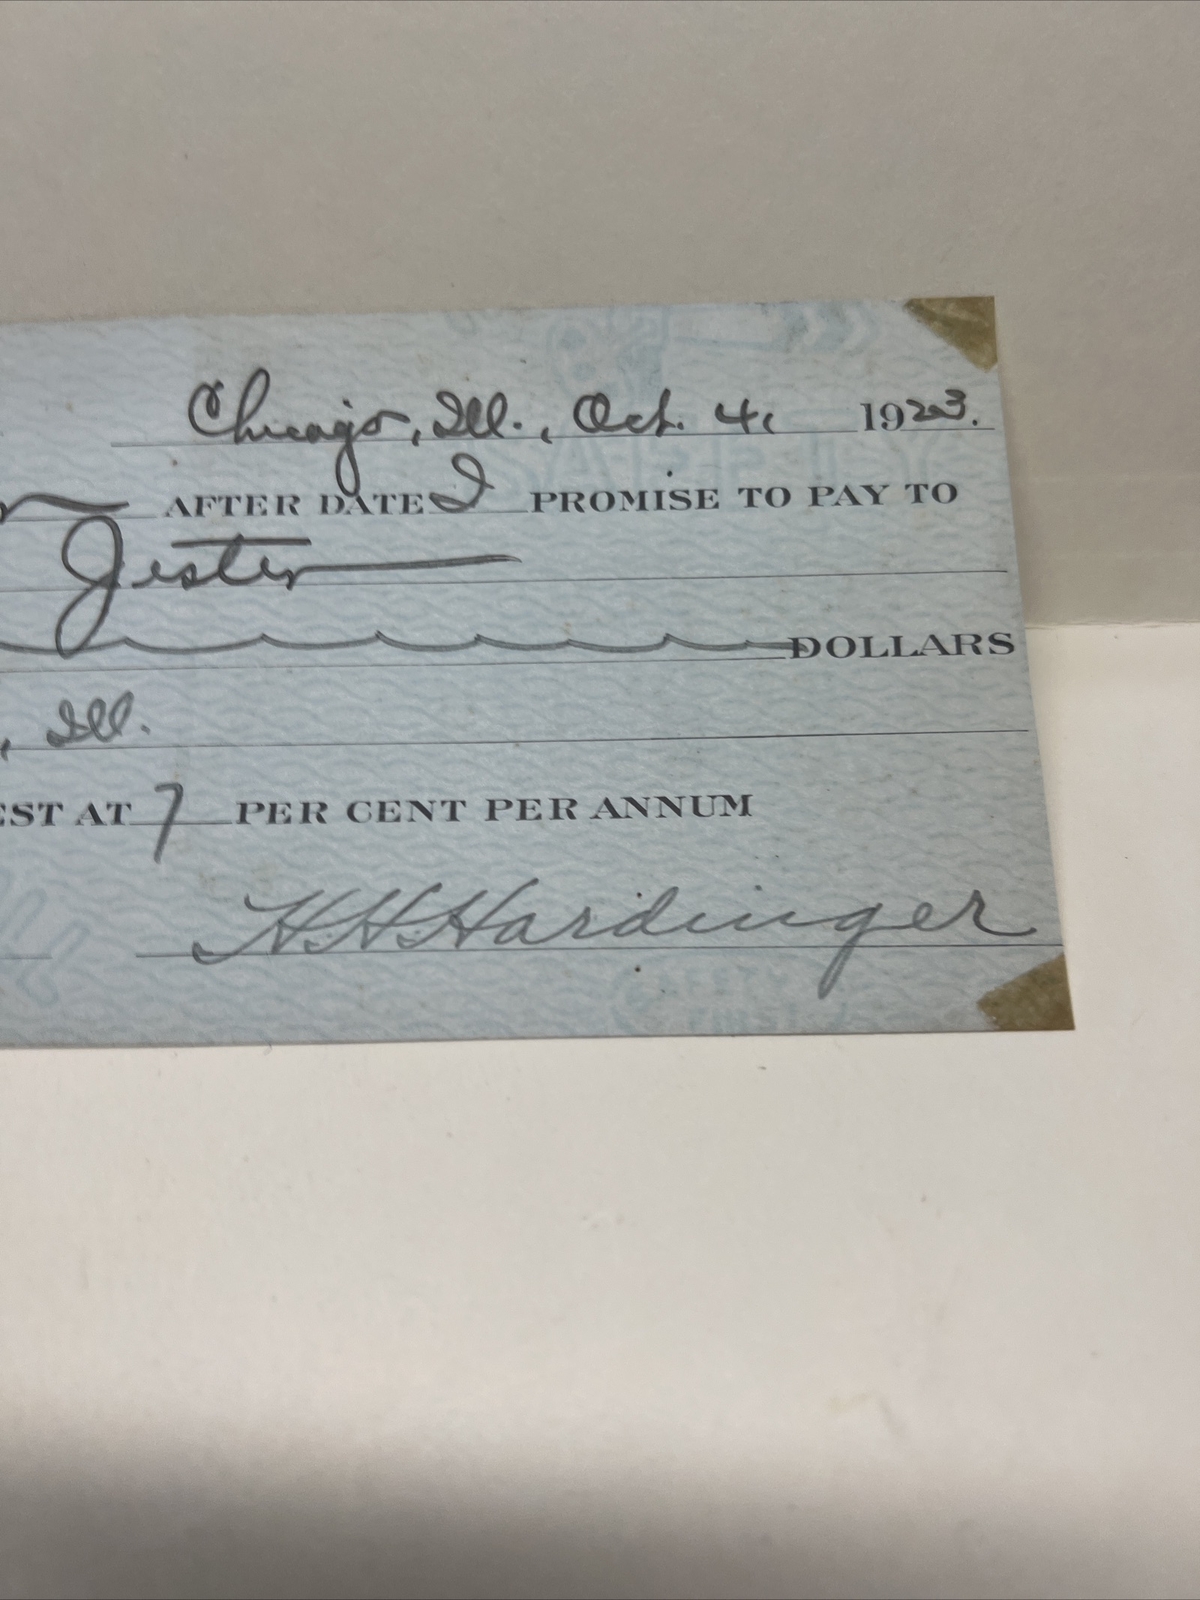 Chicago, Ill., Oct. 4, 1923.
AFTER DATE I PROMISE TO PAY TO
Jester
DOLLARS
, Ill.
EST AT 7 PER CENT PER ANNUM
H.H. Hardinger